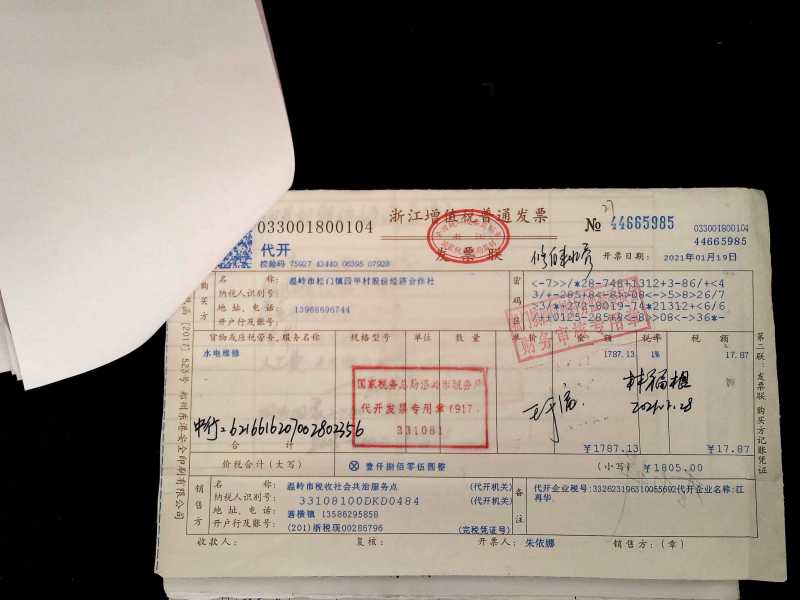 浙江增值税普通发票
033001800104
发票联
No 44665985
27
033001800104
44665985
代开
校验码 75927 43440 06395 07928
开票日期: 2021年01月19日
购买方
名 称: 温岭市松门镇四甲村股份经济合作社
纳税人识别号:
地 址、电 话: 13968696744
开户行及账号:
密码区
<-7>>/*28-748+1312+3-86/+<4
财务审核专用章
货物或应税劳务、服务名称 规格型号 单位 数 量 单 价 金 额 税率 税 额
水电维修 1787.13 1% 17.87
国家税务总局温岭市税务局
代开发票专用章(917)
331081
韩福根
2021.1.28
中行=6216616207002802356
合 计 ¥1787.13 ¥17.87
价税合计(大写) ⊗ 壹仟捌佰零伍圆整 (小写) ¥1805.00
销售方
名 称: 温岭市税收社会共治服务点 (代开机关)
纳税人识别号: 33108100DKD0484 (代开机关)
地 址、电 话: 箬横镇 13586295858
开户行及账号: (201)浙税现00286796 (完税凭证号)
备注
代开企业税号:332623196310055692代开企业名称:江
再华.
收款人: 复核: 开票人: 朱依娜 销售方:(章)
第二联:发票联 购买方记账凭证